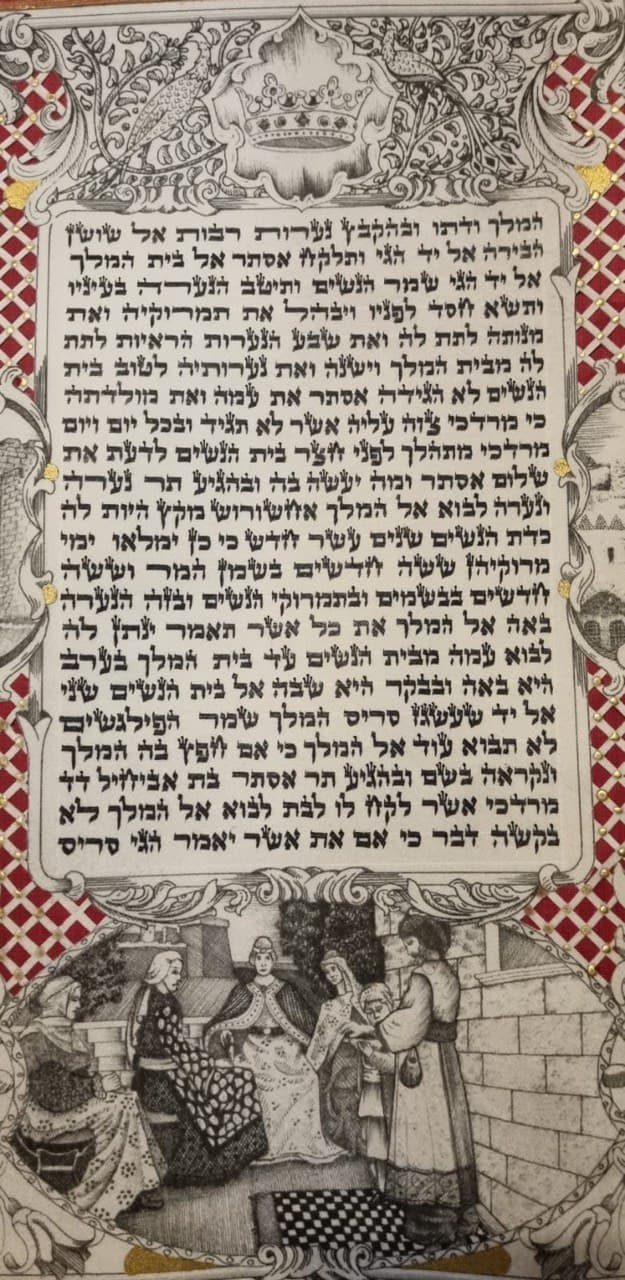 המלך ודתו ובהקבץ נערות רבות אל שושן
הבירה אל יד הגי ותלקח אסתר אל בית המלך
אל יד הגי שמר הנשים ותיטב הנערה בעיניו
ותשא חסד לפניו ויבהל את תמרוקיה ואת
מנותה לתת לה ואת שבע הנערות הראיות לתת
לה מבית המלך וישנה ואת נערותיה לטוב בית
הנשים לא הגידה אסתר את עמה ואת מולדתה
כי מרדכי צוה עליה אשר לא תגיד ובכל יום ויום
מרדכי מתהלך לפני חצר בית הנשים לדעת את
שלום אסתר ומה יעשה בה ובהגיע תר נערה
ונערה לבוא אל המלך אחשורוש מקץ היות לה
כדת הנשים שנים עשר חדש כי כן ימלאו ימי
מרוקיהן ששה חדשים בשמן המר וששה
חדשים בבשמים ובתמרוקי הנשים ובזה הנערה
באה אל המלך את כל אשר תאמר ינתן לה
לבוא עמה מבית הנשים עד בית המלך בערב
היא באה ובבקר היא שבה אל בית הנשים שני
אל יד שעשגז סריס המלך שמר הפילגשים
לא תבוא עוד אל המלך כי אם חפץ בה המלך
ונקראה בשם ובהגיע תר אסתר בת אביחיל דד
מרדכי אשר לקח לו לבת לבוא אל המלך לא
בקשה דבר כי אם את אשר יאמר הגי סריס